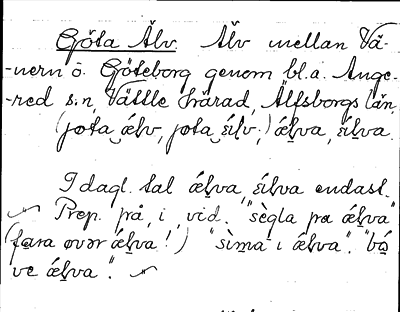 Göta Älv. Älv mellan Vä-
-nern o. Göteborg genom bl.a. Ange-
-red s:n, Vättle härad, Älfsborgs län,
(jøta ælv, jøta ɛilv,) æḷva, ɛiḷva.
I dagl. tal æḷva, ɛilva endast.
Prep. på, i, vid. "sègla pa æḷva"
(fara øvər æḷva!) "sìma i æḷva". "bó̤
ve æḷva".